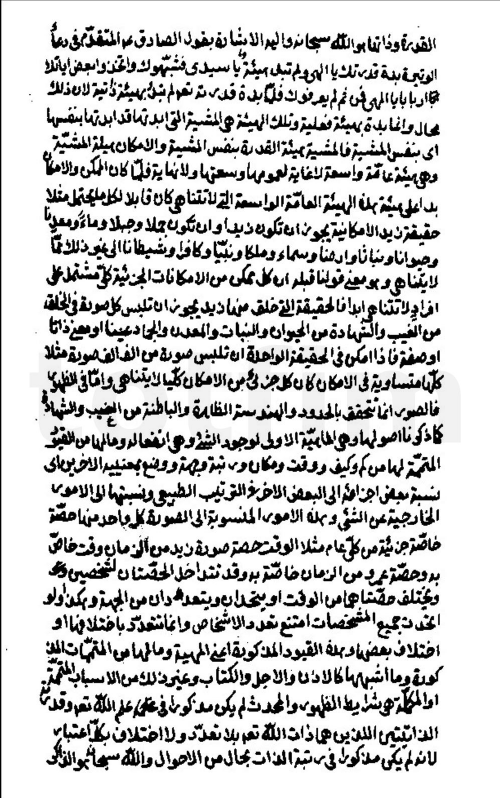 القدرة وذاتها هو الله سبحانه واليه الاشارة بقول الصادق عه المتقدم فى دعاء
الوتيرة بدت قدرتك يا الهى ولم تبد هيئة يا سيدى فشبهوك واتخذوا بعض اياتك
اربابا يا الهى فمن ثم لم يعرفوك فلما بدت قدرته تعه لم تبد بهيئة ذاتية لان ذلك
محال وانما بدت بهيئة فعلية وتلك الهيئة هى المشية التى ابدتها قد ابدتها بنفسها
اى بنفس المشية فالمشية هيئة القدرة بنفس المشية والامكان هيئة المشية
وهى هيئة عامة واسعة لا غاية لعمومها وسعتها ولا نهاية فلما كان الممكن والامكان
بدا على هيئة بهذه الهيئة العامة الواسعة التى لا تتناهى كان قابلا لكل ما يحتمل مثلا
حقيقة زيد الامكانية يجوز ان تكون زيدا وان تكون جملا وجبلا وماء ومعدنا
وحيوانا ونباتا وارضا وسماء وملكا ونبيا وكافرا وشيطانا الى غير ذلك مما
لا يتناهى وهو معنى قولنا قبله ان كل ممكن من الامكانات الجزئية كلى مشتمل على
افراد لا تتناهى ابدا فالحقيقة التى خلق منها زيد يجوز ان تلبس كل صورة فى الخلق
من الغيب والشهادة من الحيوان والنبات والمعدن والجماد عينا او معنى ذاتا
او صفة فاذا امكن فى الحقيقة الواحدة ان تلبس صورة من الف الف صورة مثلا
كلها متساوية فى الامكان كان كل جزئى من الامكان كليا لا يتناهى واما فى الظهور
فالصور انما تتحقق بالحدود والهندسة الظاهرة والباطنة من الغيب والشهادة
كما ذكرنا اصولها وهى الماهية الاولى لوجود الشئ وهى انفعاله وما لها من القيود
المتممة لها من كم وكيف ووقت ومكان ورتبة وجهة ووضع بمعنييه الاخيرين اى
نسبة بعض اجزائه الى البعض الاخر فى الترتيب الطبيعى ونسبتها الى الامور
الخارجية عن الشئ وهذه الامور المنسوبة الى الصورة كل واحد منها حصة
خاصة جزئية من كلى عام مثلا الوقت حصة صورة زيد من الزمان وقت خاص
به وحصة عمرو من الزمان خاصة به وقد تتداخل الحصتان لشخصين وقد
تختلف حصتاهما من الوقت او يتحدان ويتعددان من الجهة والمكان ولو
اتحدت جميع المشخصات امتنع تعدد الاشخاص وانما تتعدد باختلافها او
اختلاف بعضها وهذه القيود المذكورة اعنى المهية وما لها من المتممات المذ
كورة وما اشبهها كالاذن والاجل والكتاب وغير ذلك من الاسباب المتممة
او المكملة هى شرايط الظهور والمحدث لم يكن مذكورا فى علم الله تعه وقدرته
الذاتيتين اللذين هما ذات الله تعه بلا تعدد ولا اختلاف بكل اعتبار
لانه لم يكن مذكورا فى رتبة الذات بحال من الاحوال والله سبحانه هو الذاكر